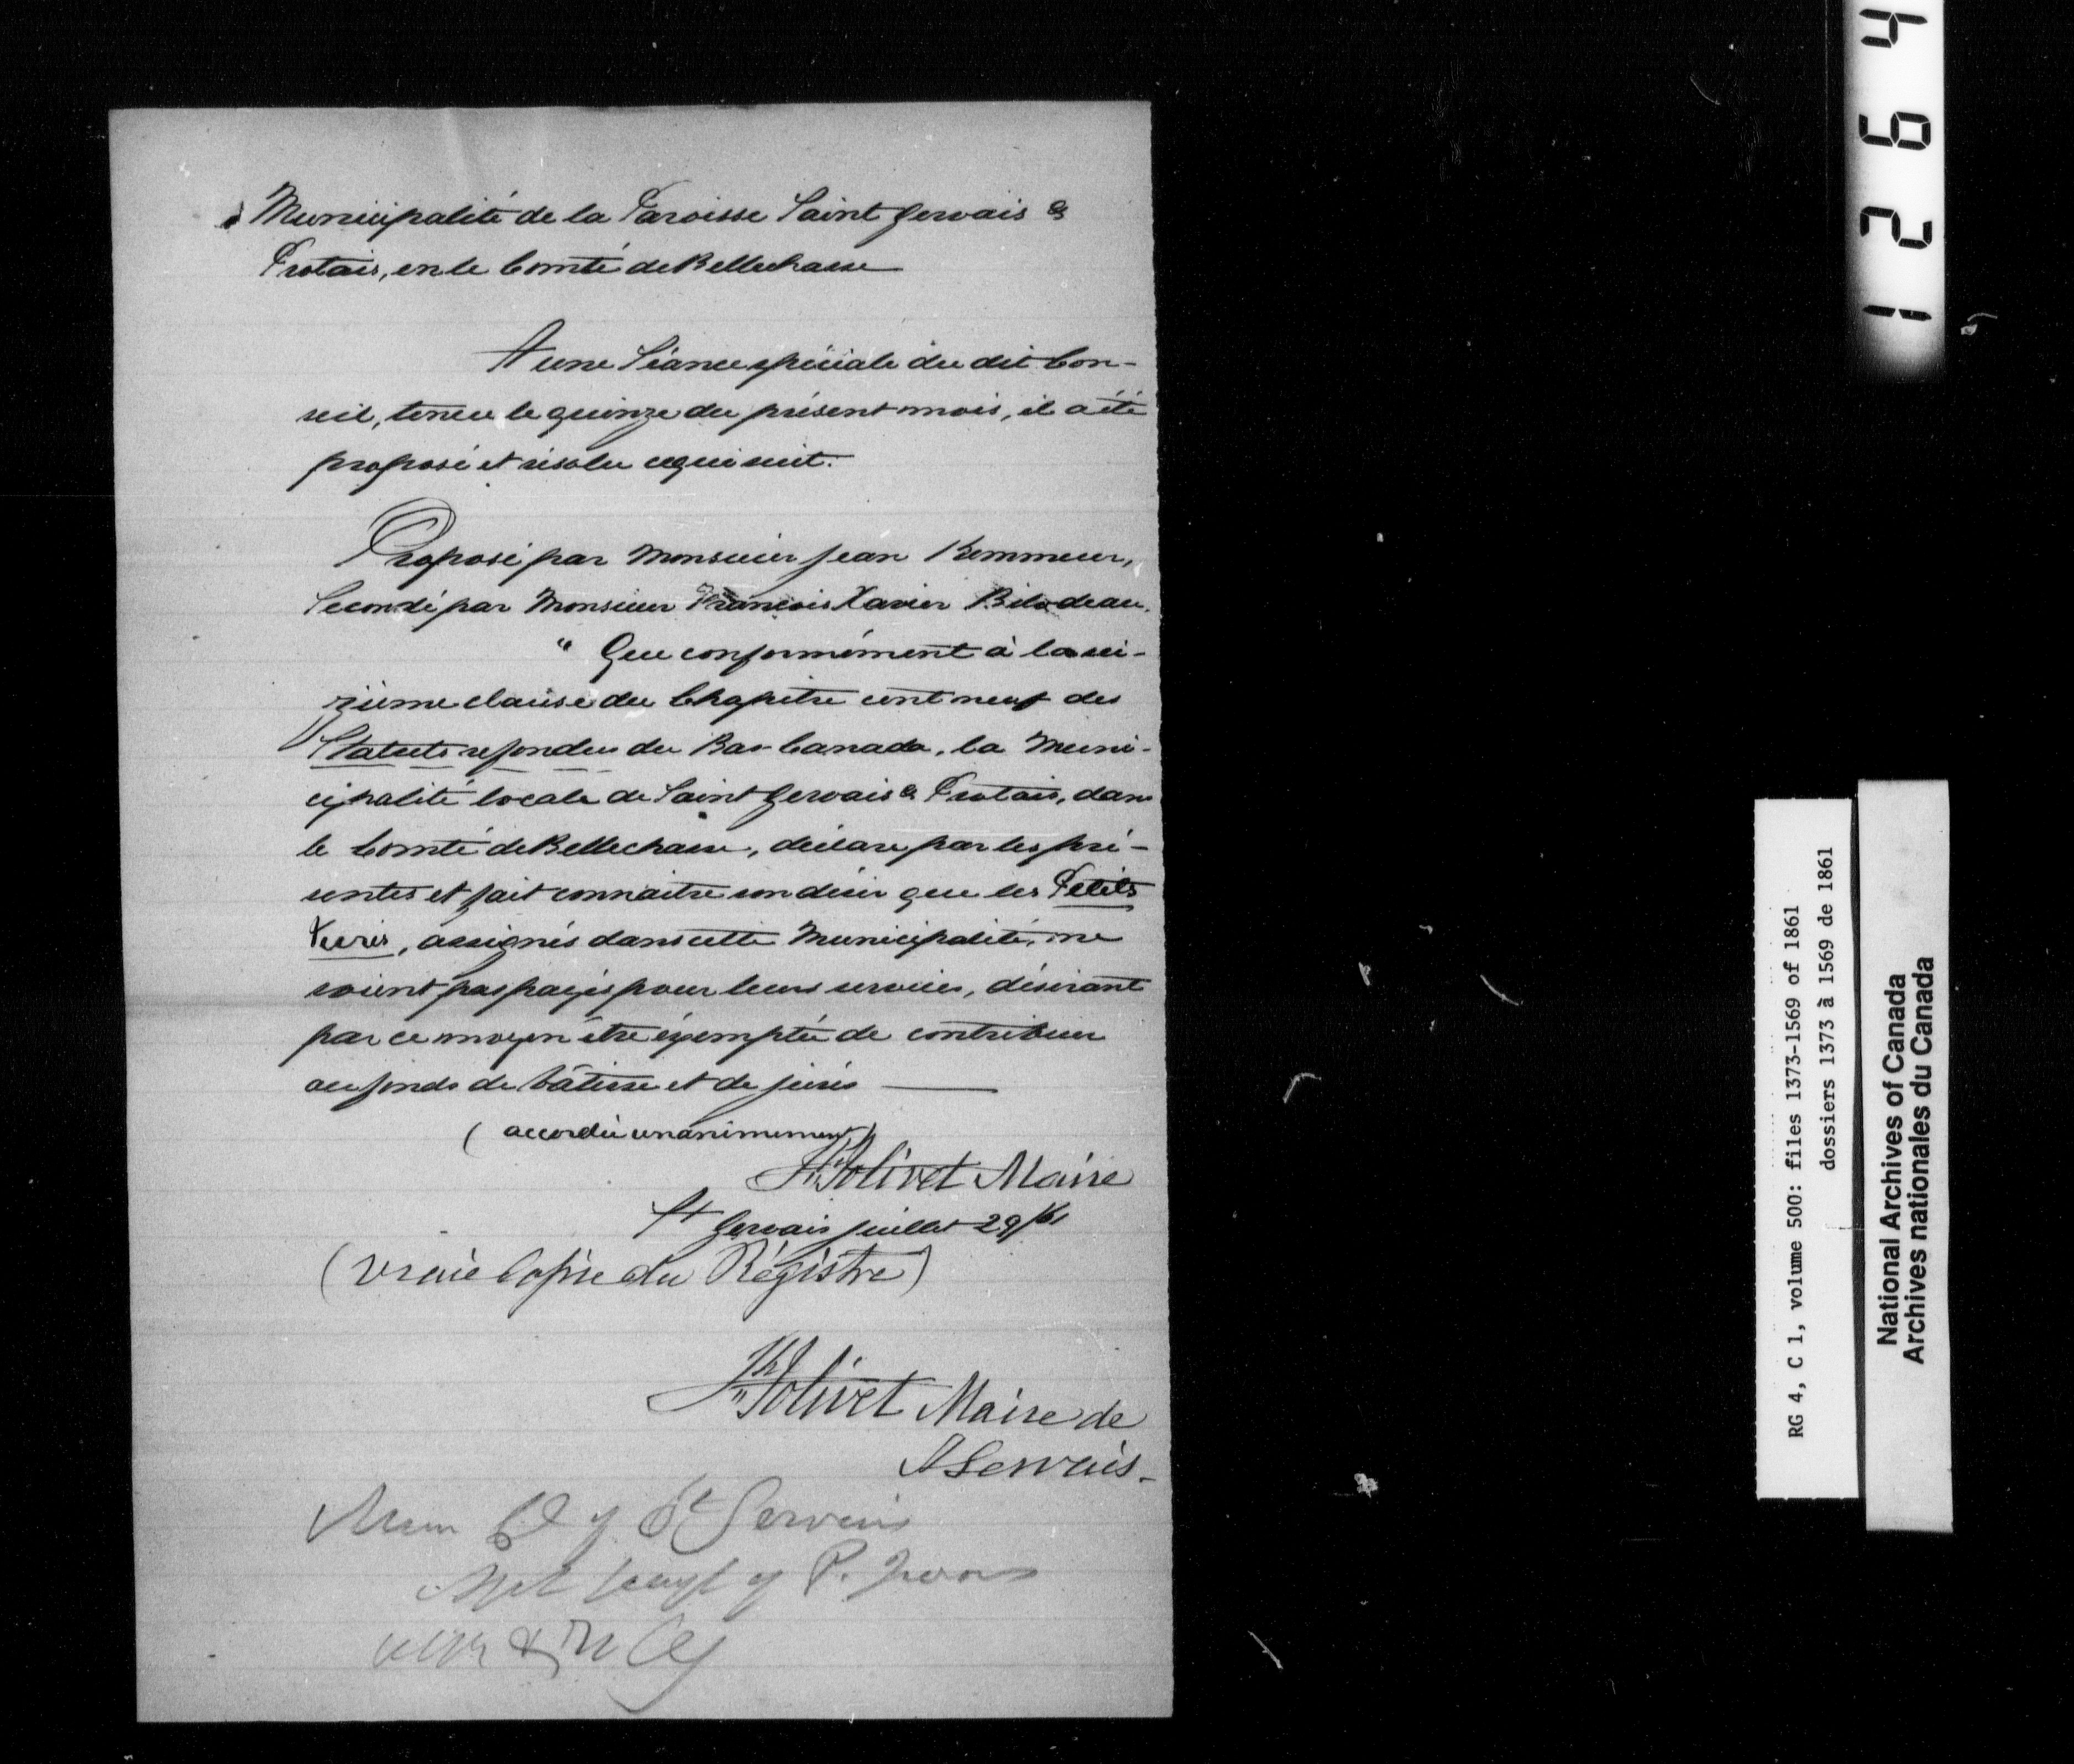 Municipalité de la Paroisse Saint Gervais &
Protais, en le Comté de Bellechasse
A une Séance spéciale du dit Con-
seil, tenue le quinze du présent mois, il a été
proposé et résolu ce qui suit.
Proposé par Monsieur Jean
Secondé par Monsieur François Xavier Bilodeau.
" Que conformément à la sei-
zième clause du Chapitre cent neuf des
Statuts refondus du Bas-Canada, la Muni-
cipalité locale de Saint Gervais & Protais, dans
le Comté de Bellechasse, déclare par les pré-
sentes et fait connaitre son désir que les Petits
Jurés, assignés dans cette Municipalité, ne
soient pas payés pour leurs services, désirant
par ce moyen être éxemptée de contribuer
au fonds de bâtisse et de jurés
(accordée unanimement)
Jolivet Maire
St Gervais juillet 29/61
(Vraie Copie du Régistre)
Jolivet Maire de
St Gervais-
St Gervais
P.
1264
RG 4, C 1, volume 500: files 1373-1569 of 1861
dossiers 1373 à 1569 de 1861
National Archives of Canada
Archives nationales du Canada